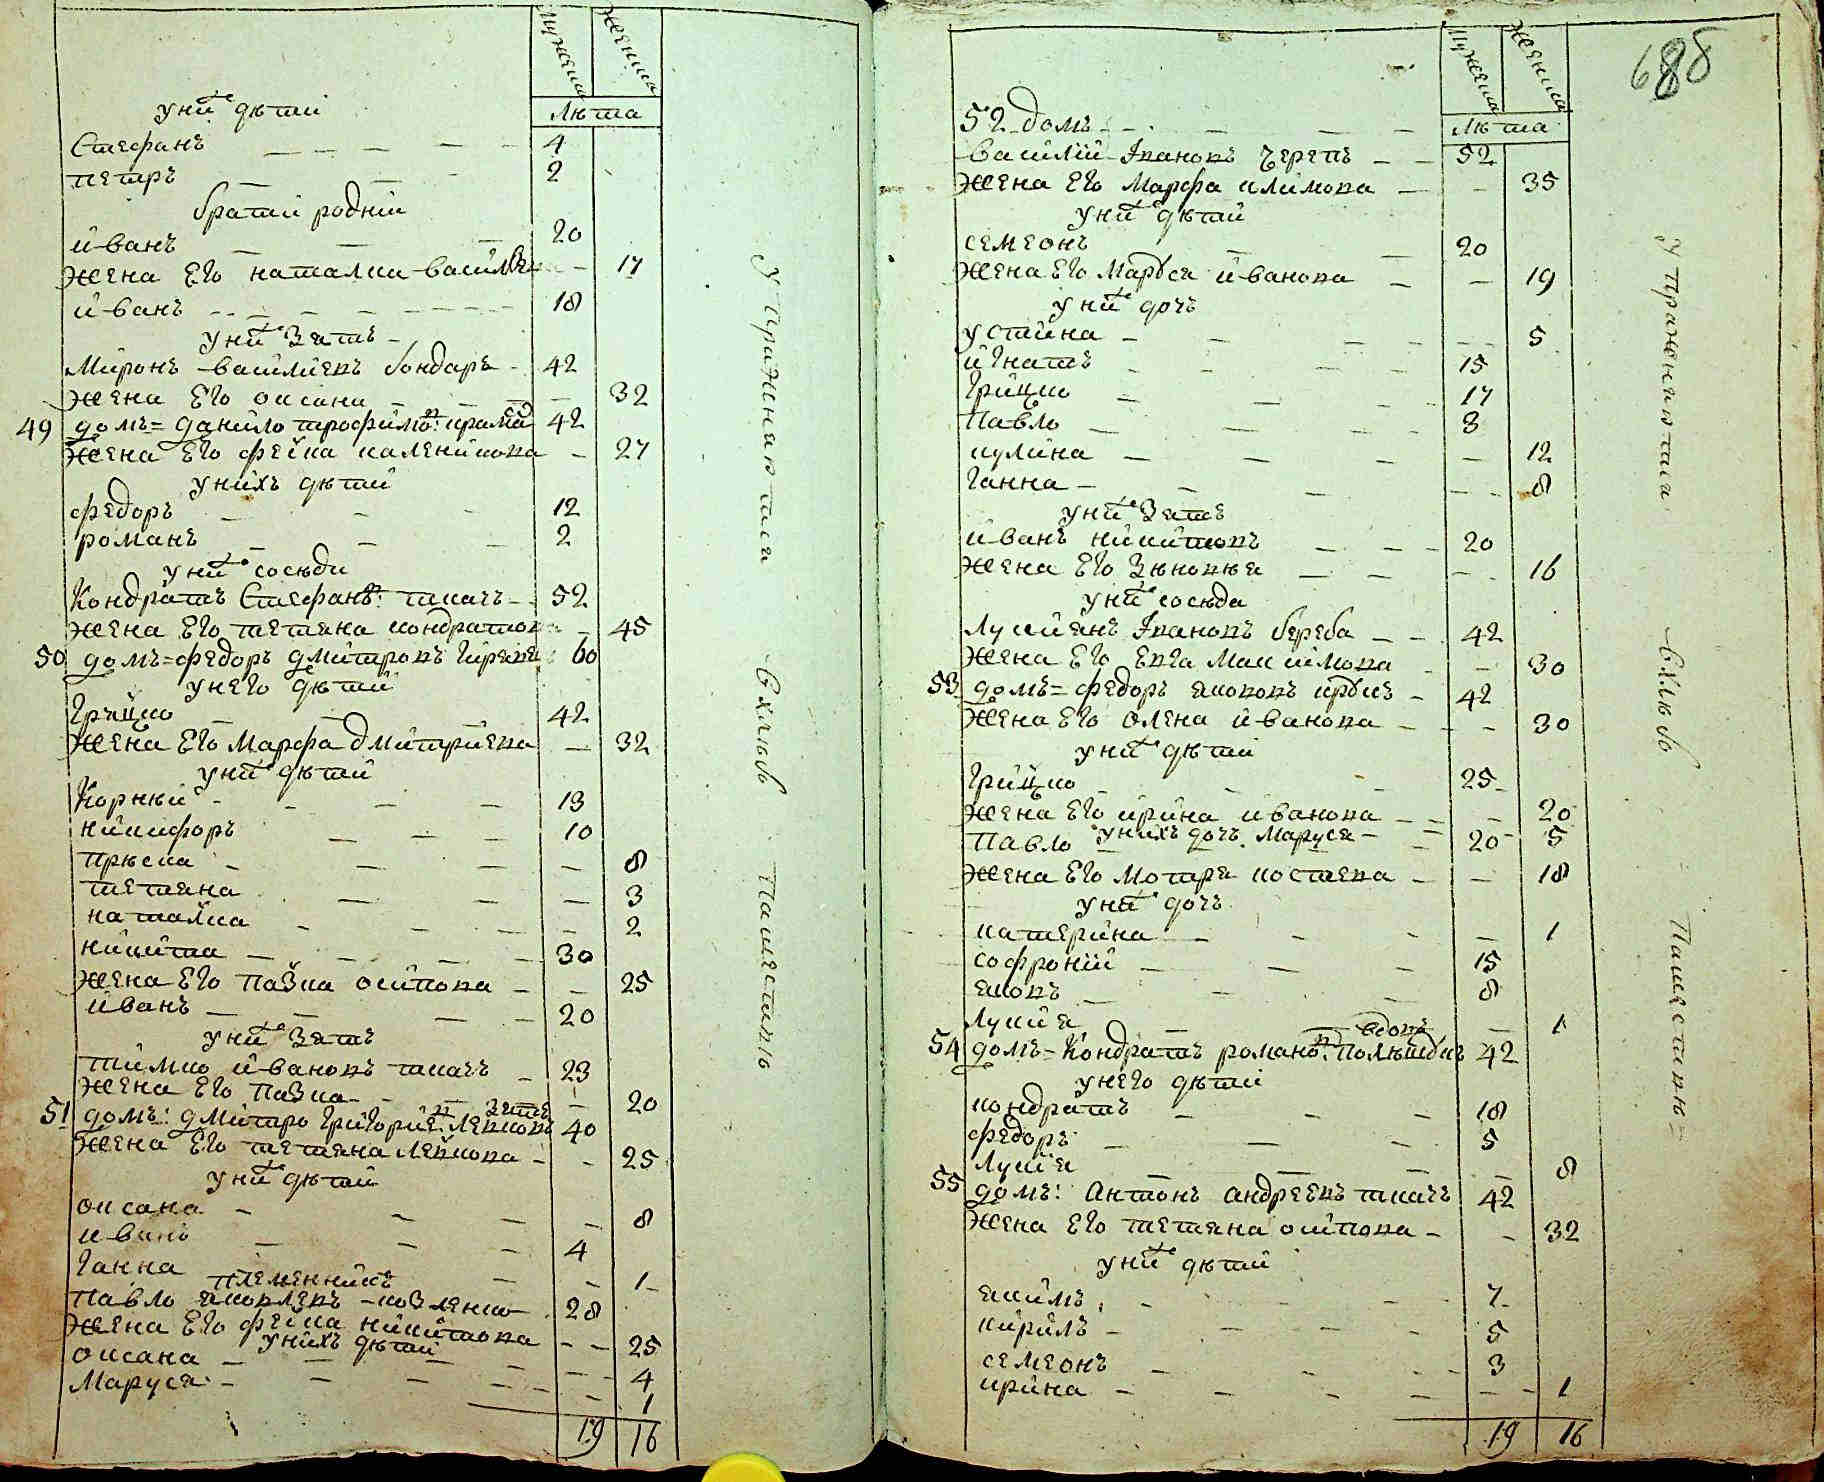 мужеска
женска
лѣта
у них дѣтей
Стефанъ 4
петръ 2
братій родній
иванъ 20
жена его наталка василіева 17
иванъ 18
у них зять
Миронъ василіевъ бондаръ 42
жена его оксана 32
49 домъ = данило трофимов: 42
жена его феика каленикова 27
унихъ дѣтей
федоръ 12
романъ 2
у них сосѣди
Кондратъ Стефанв: ткачъ 52
жена его тетяна кондратова 45
50 домъ = федоръ дмитровъ 60
унего дѣтей
грицко 42
жена его Марфа дмитріева 32
у них дѣтей
Корнѣй 13
никифоръ 10
прѣска 8
тетяна 3
наталка 2
никита 30
жена его пазка осипова 25
иванъ 20
у них зять
тимко ивановъ ткачъ 23
жена его пазка 20
зять
51 домъ: дмитро григоріе: левковъ 40
жена его тетяна левкова 25
у них дѣтей
оксана 8
иванъ 4
ганна 1
племенникъ
павло яковлевъ козленко 28
жена его феика никитова 25
унихъ дѣтей
оксана 4
Маруся 1
19 16
упражняется
в хлѣбо
пашествѣ
688
мужеска
женска
лѣта
52 домъ
василій Івановъ Черепъ 52
жена его Марфа климова 35
у них дѣтей
семеонъ 20
жена его Маруся иванова 19
у них дочъ
устина 5
игнатъ 15
грицко 17
павло 3
кулина 12
ганна 8
у них зять
иванъ никитовъ 20
жена его Зѣновѣя 16
у них сосѣда
Лукиянъ Івановъ береба 42
жена его евга Максимова 30
53 домъ = федоръ якововъ 42
жена его олена иванова 30
у них дѣтей
грицко 25
жена его ирина иванова 20
унихъ дочъ Маруся 5
павло 20
жена его мотря костева 18
у них дочъ
катерина 1
софроній 15
яковъ 8
Лукія 1
вдовъ
54 домъ = Кондратъ романов: 42
унего дѣтей
кондратъ 18
федоръ 5
Лукія 8
55 домъ: антонъ андреевъ ткачъ 42
жена его тетяна осипова 32
у них дѣтей
якимъ 7
кирилъ 5
семеонъ 3
ирина 1
19 16
упражняется
в хлѣбо
пашествѣ